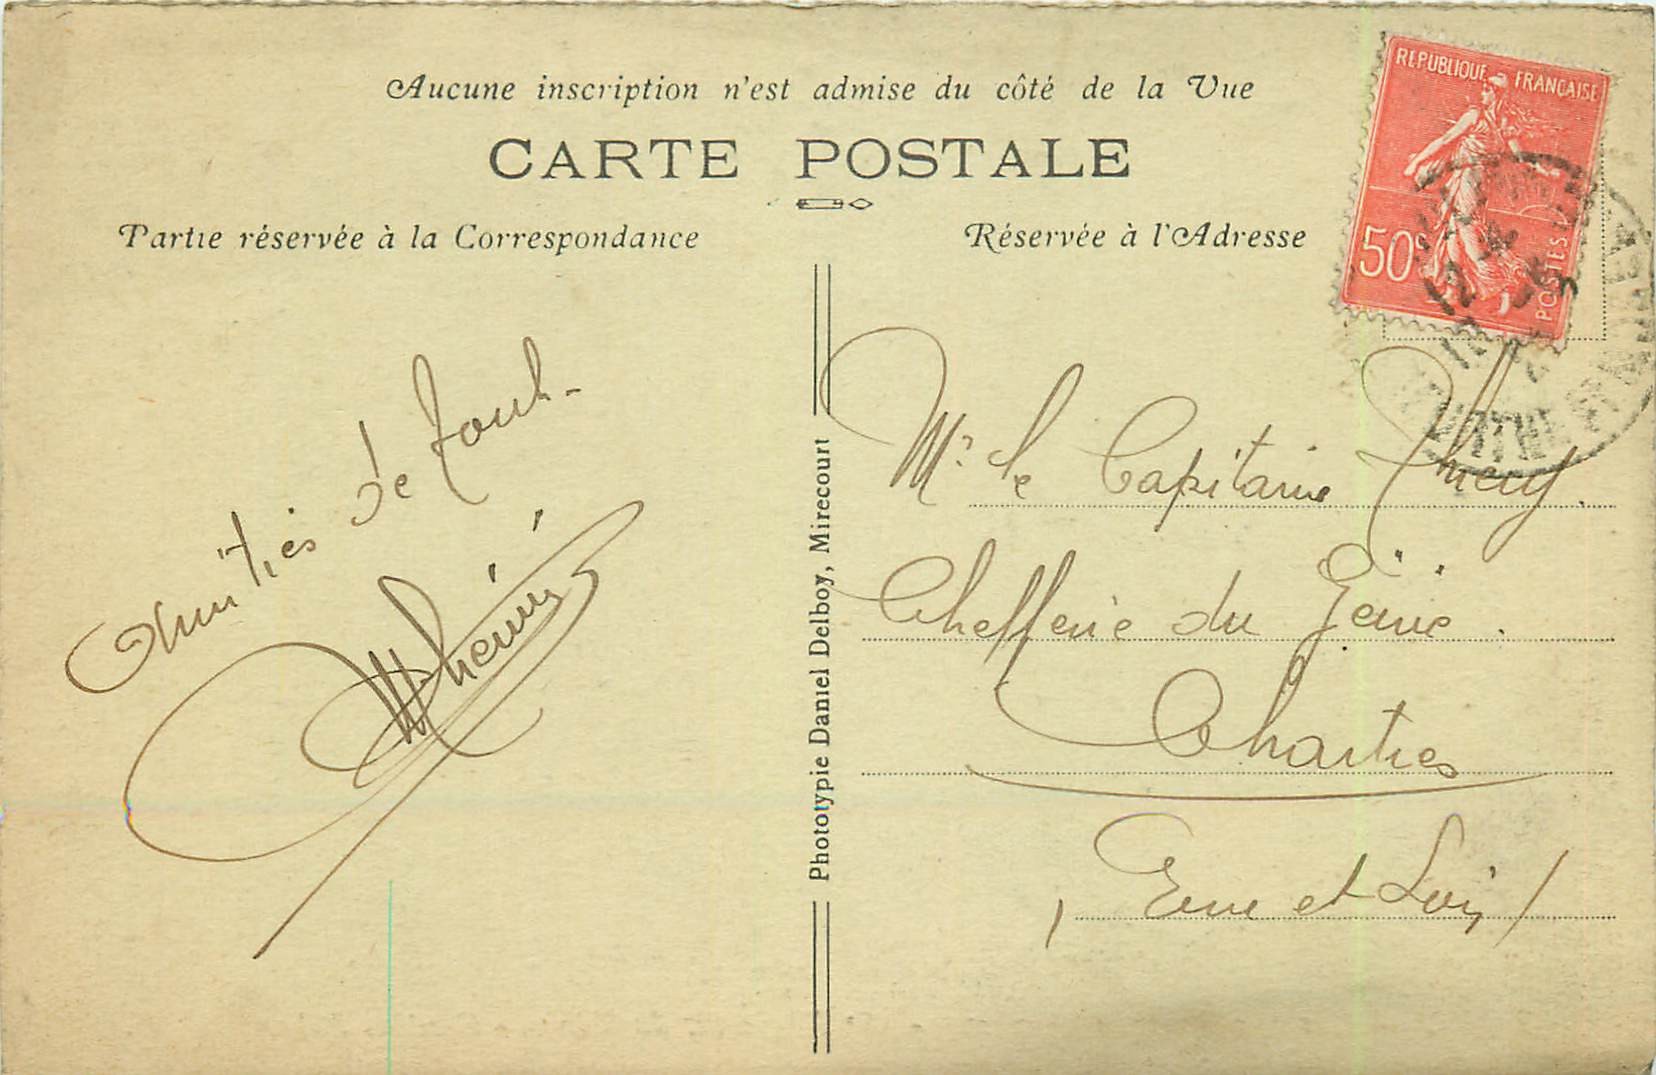 Aucune inscription n'est admise du côté de la Vue
CARTE POSTALE
Partie réservée à la Correspondance
Réservée à l'Adresse
REPUBLIQUE FRANÇAISE
50c
POSTES
Amitiés de tous -
Phototypie Daniel Delboy, Mirecourt
Mr le Capitaine Thiery.
Chefferie du Génie.
Chartres
(Eure et Loir)